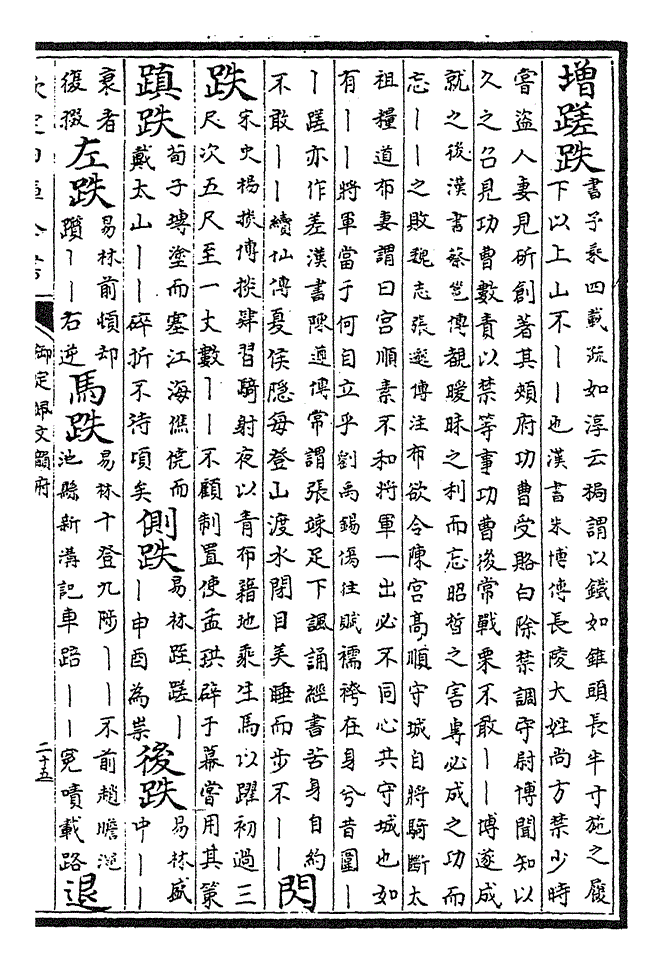 增蹉跌 書予乘四載疏如淳云梮謂以鐵如錐頭長半寸施之履
下以上山不丨丨也漢書朱博傳長陵大姓尚方禁少時
嘗盜人妻見斫創著其頰府功曹受賂白除禁調守尉博聞知以
久之召見功曹數責以禁等事功曹後常戰栗不敢丨丨博遂成
就之後漢書蔡邕傳覩曖昧之利而忘昭晢之害專必成之功而
忘丨丨之敗魏志張邈傳注布欲令陳宮髙順守城自將騎斷太
祖糧道布妻謂曰宮順素不和將軍一出必不同心共守城也如
有丨丨將軍當于何自立乎劉禹錫傷往賦襦袴在身兮昔圍丨
丨蹉亦作差漢書陳遵傳常謂張竦足下諷誦經書苦身自約
不敢丨丨續仙傳夏侯隱每登山渡水閉目美睡而步不丨丨 閃
跌 宋史楊掞傳掞肆習騎射夜以青布藉地乘生馬以躍初過三
尺次五尺至一丈數丨丨不顧制置使孟珙辟于幕嘗用其策
蹎跌 荀子塼塗而塞江海僬僥而
戴太山丨丨碎折不待頃矣
側跌 易林踁蹉丨
丨申酉為祟
後跌 易林盛
中丨丨
衰者
復掇
左跌 易林前頓却
躓丨丨右逆
馬跌 易林十登九陟丨丨不前趙瞻澠
池縣新溝記車踣丨丨冤嘖載路
退
欽定四庫全書
御定佩文韻府
二十五